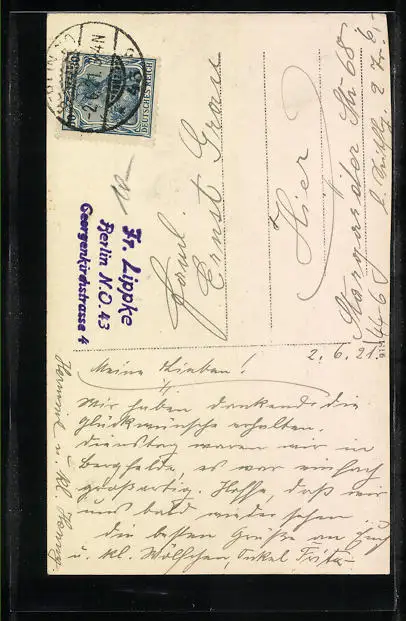 BERLIN
-2.6.21. 3-4N
43
DEUTSCHES REICH
Fr. Lippke
Berlin N.O.43
Georgenkirchstrasse 4
Famil.
Ernst Gross
Hier
Stargarder Str 68
2.6.21.
Meine Lieben!
Wir haben dankend die
Glückwünsche erhalten.
Dienstag waren wir in
Bergfelde, es war einfach
großartig. Hoffe, daß wir
uns bald wieder sehen
die besten Grüße an Euch
u. kl. Wölfchen, Onkel Fritz
u. kl.